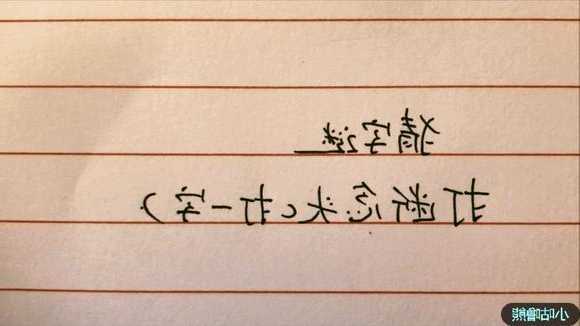 猜字谜
打断念头(打一字)
小咕噜熊